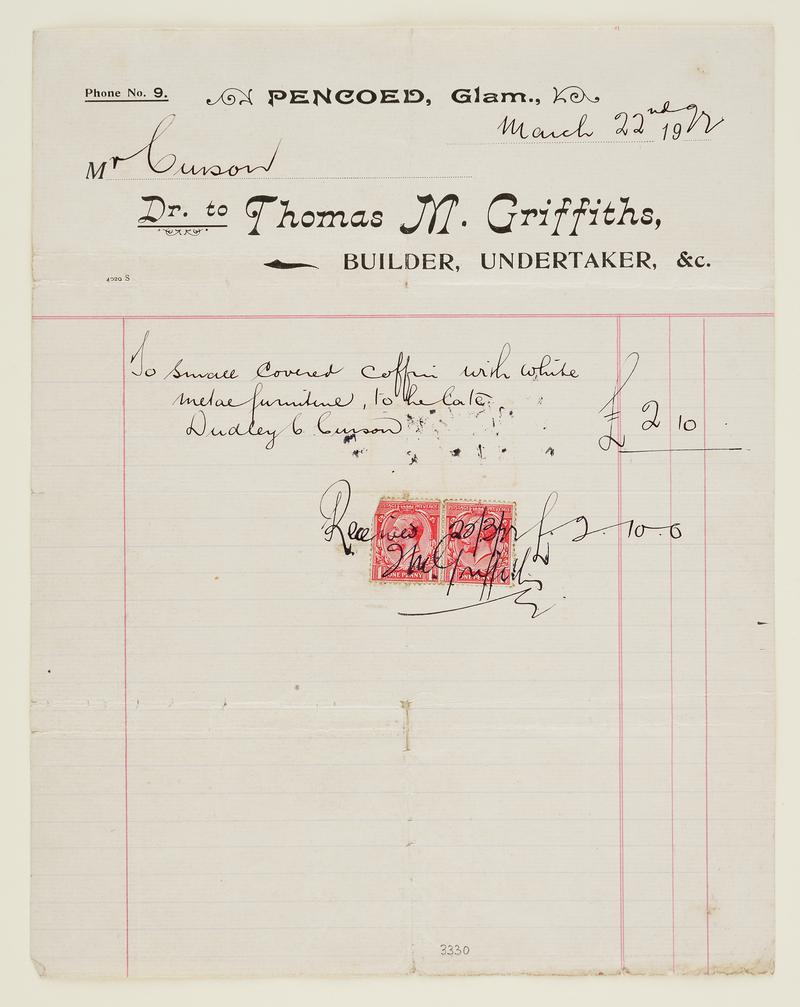 Phone No. 9.
PENCOED, Glam.,
March 22nd 1922
Mr Curson
Dr. to Thomas M. Griffiths,
BUILDER, UNDERTAKER, &c.
4020 S
To small covered coffin with white
metal furniture, to the late
Dudley C Curson
£ 2 10 .
Received 22/3/22 £. 2. 10. 0
POSTAGE REVENUE POSTAGE REVENUE
Griffiths
ONE PENNY
3330